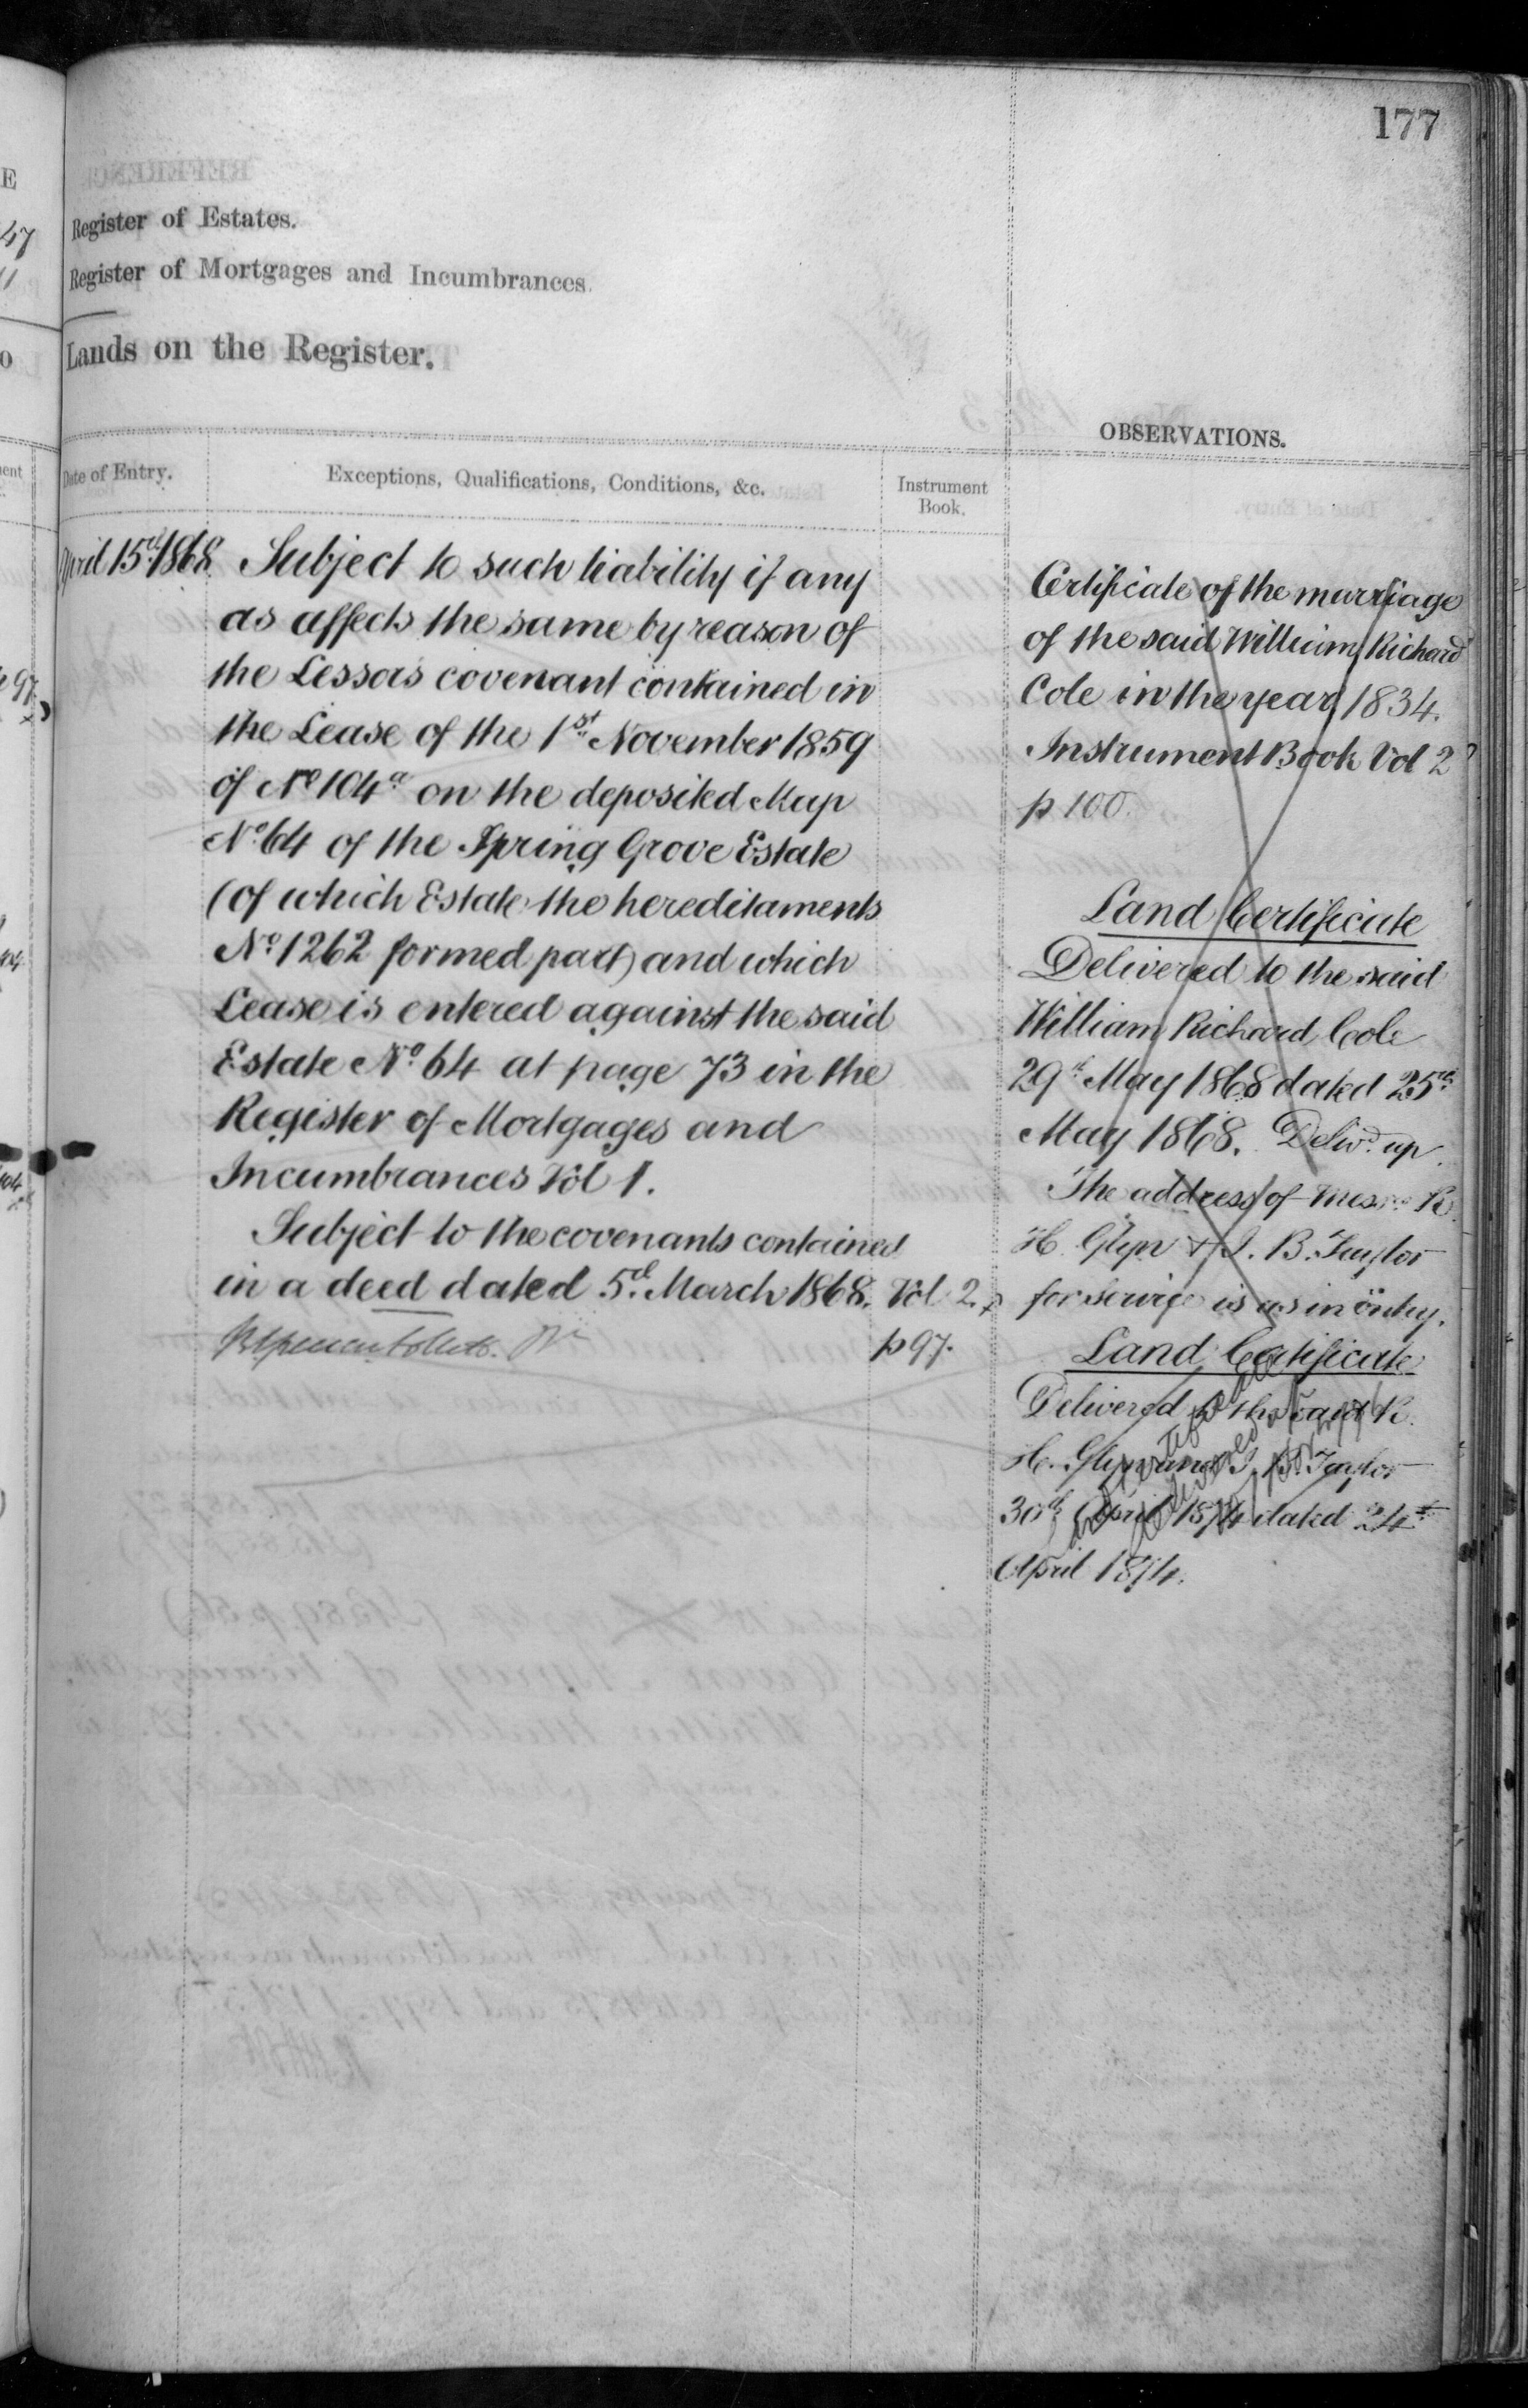 177
Register of Estates.
Register of Mortgages and Incumbrances.
Lands on the Register.
OBSERVATIONS.
Date of Entry.
Exceptions, Qualifications, Conditions, &c.
Instrument
Book.
April 15th 1868. Subject to such liability if any
as affects the same by reason of
the Lessors covenant contained in
the Lease of the 1st November 1859
of No 104a on the deposited Map
No 64 of the Spring Grove Estate
(of which Estate the hereditaments
No 1262 formed part) and which
Lease is entered against the said
Estate No 64 at page 73 in the
Register of Mortgages and
Incumbrances Vol 1.
Subject to the covenants contained
in a deed dated 5th March 1868. Vol 2.
p 97.
Certificate of the marriage
of the said William Richard
Cole in the year 1834.
Instrument Book Vol 2
p 100.
Land Certificate
Delivered to the said
William Richard Cole
29th May 1868 dated 25th
May 1868. Delivd. up.
The address of Messrs R.
H. Glyn & J. B. Taylor
for service is as in entry.
Land Certificate
Delivered to the said R.
H. Glyn and J. B. Taylor
30th April 1874 dated 24th
April 1874.